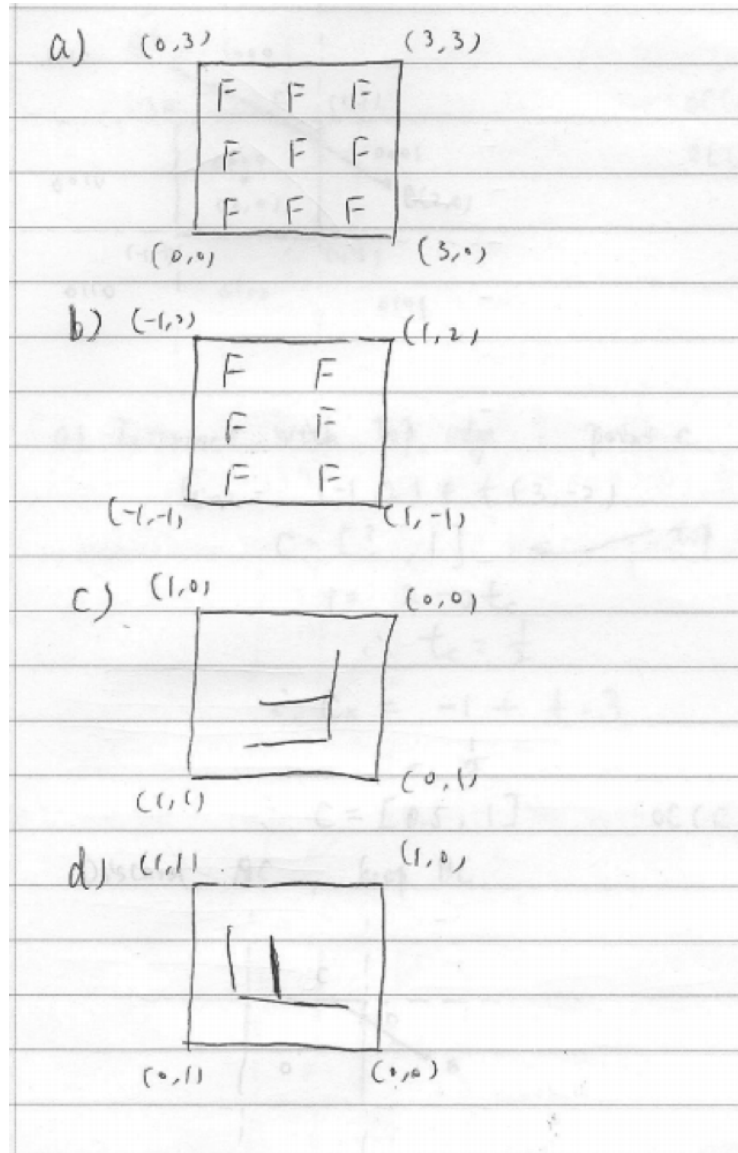 a) (0,3) (3,3)
F F F
F F F
F F F
(0,0) (3,0)
b) (-1,2) (1,2)
F F
F F
F F
(-1,-1) (1,-1)
c) (1,0) (0,0)
(1,1) (0,1)
d) (1,1) (1,0)
(0,1) (0,0)